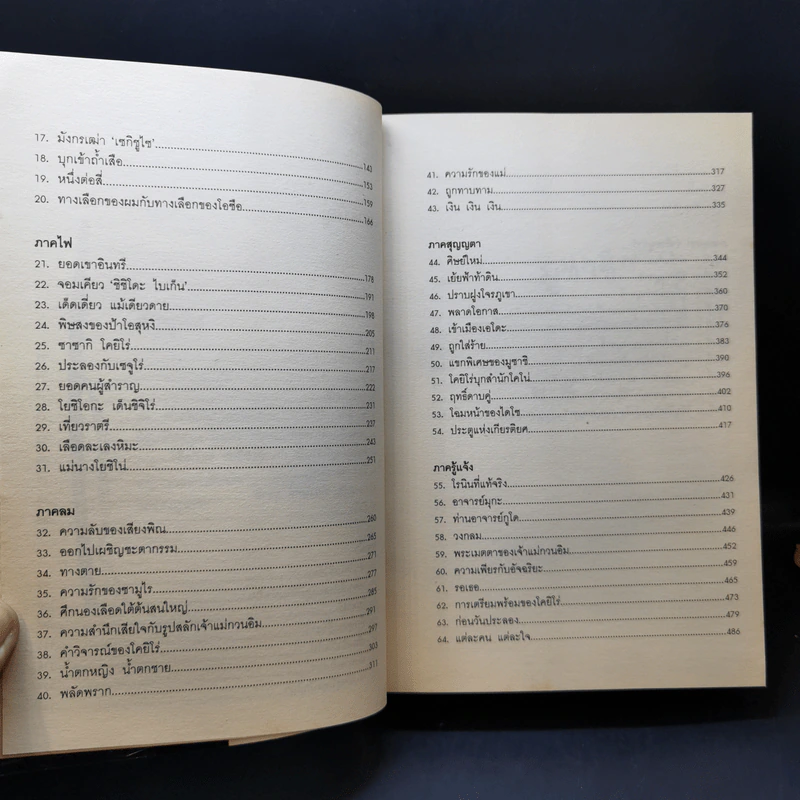 17. มังกรเฒ่า ‘เซกิชูไซ’ 143
18. บุกเข้าถ้ำเสือ 153
19. หนึ่งต่อสี่ 159
20. ทางเลือกของผมกับทางเลือกของโอซือ 166
ภาคไฟ
21. ยอดเขาอินทรี 178
22. จอมเคียว ‘ชิชิโดะ ไบเก็น’ 191
23. เด็ดเดี่ยว แม้เดียวดาย 198
24. พิษสงของป้าโอสุหงิ 205
25. ซาซากิ โคยิโร่ 211
26. ประลองกับเซจูโร่ 217
27. ยอดคนผู้สำราญ 222
28. โยชิโอกะ เด็นชิจิโร่ 231
29. เที่ยวราตรี 237
30. เลือดละเลงหิมะ 243
31. แม่นางโยชิโน่ 251
ภาคลม
32. ความลับของเสียงพิณ 260
33. ออกไปเผชิญชะตากรรม 265
34. ทางตาย 271
35. ความรักของซามูไร 277
36. ศึกนองเลือดใต้ต้นสนใหญ่ 285
37. ความสำนึกเสียใจกับรูปสลักเจ้าแม่กวนอิม 291
38. คำวิจารณ์ของโคยิโร่ 297
39. น้ำตกหญิง น้ำตกชาย 303
40. พลัดพราก 311
41. ความรักของแม่ 317
42. ถูกทาบทาม 327
43. เงิน เงิน เงิน 335
ภาคสุญญตา
44. ศิษย์ใหม่ 344
45. เย้ยฟ้าท้าดิน 352
46. ปราบฝูงโจรภูเขา 360
47. พลาดโอกาส 370
48. เข้าเมืองเอโดะ 376
49. ถูกใส่ร้าย 383
50. แขกพิเศษของมูซาชิ 390
51. โคยิโร่บุกสำนักโคโน่ 396
52. ฤทธิ์ดาบคู่ 402
53. โฉมหน้าของไดโซ 410
54. ประตูแห่งเกียรติยศ 417
ภาครู้แจ้ง
55. โรนินที่แท้จริง 426
56. อาจารย์มุกะ 431
57. ท่านอาจารย์กูโด 439
58. วงกลม 446
59. พระเมตตาของเจ้าแม่กวนอิม 452
60. ความเพียรกับอัจฉริยะ 459
61. รอเธอ 465
62. การเตรียมพร้อมของโคยิโร่ 473
63. ก่อนวันประลอง 479
64. แต่ละคน แต่ละใจ 486